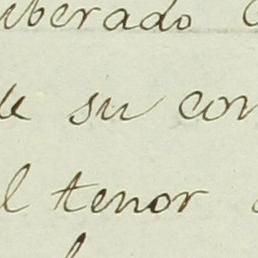 iberado
su con
l tenor